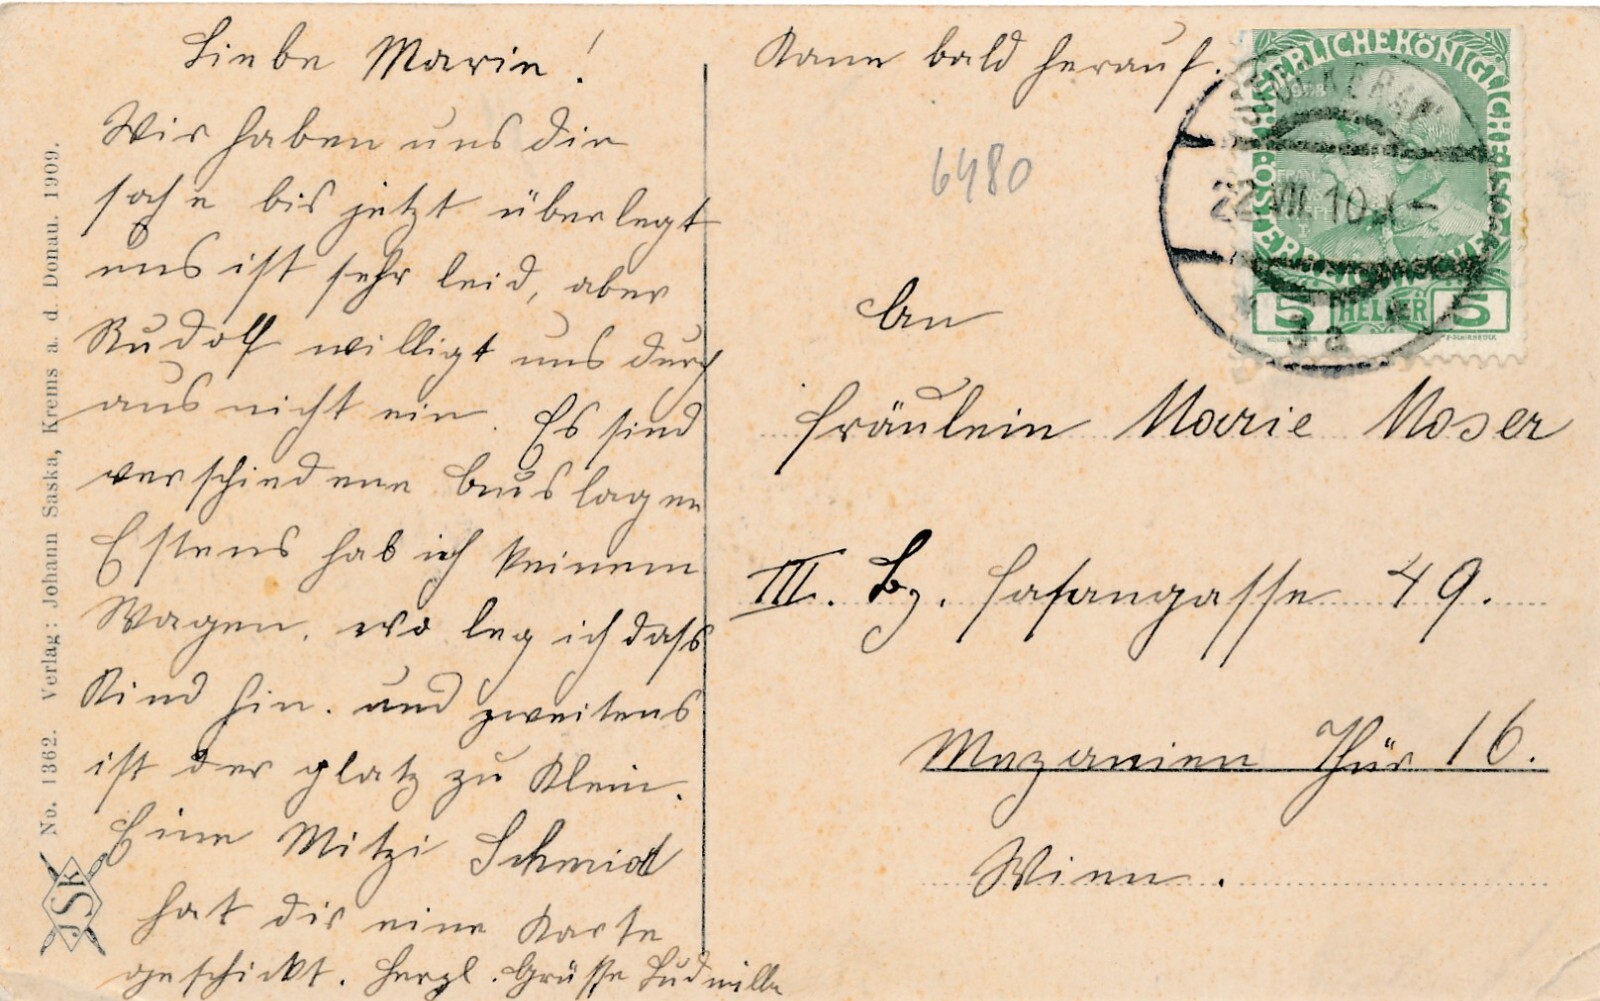 Liebe Marie!
Wir haben uns die
sache bis jetzt überlegt
uns ist sehr leid, aber
Rudolf willigt uns durch
aus nicht ein. Es sind
verschiedene Auslagen
Estens hab ich keinem
Wagen. wo leg ich dass
Kind hin. und zweitens
ist der platz zu klein.
Eine Mitzi Schmidt
hat dir eine Karte
geschickt. Herzl. Grüsse Ludmilla
Kome bald herauf.
6480
An
Fräulein Marie Moser
III. Bz. Fasangasse 49.
Mezanien Thür 16.
Wien.
KAISERLICHE KÖNIGLICHE ÖSTERREICHISCHE
1908
FRANZ
JOSEPH
I
5 HELLER 5
22 VII 10
3a
No. 1362. Verlag: Johann Saska, Krems a. d. Donau. 1909.
JSK